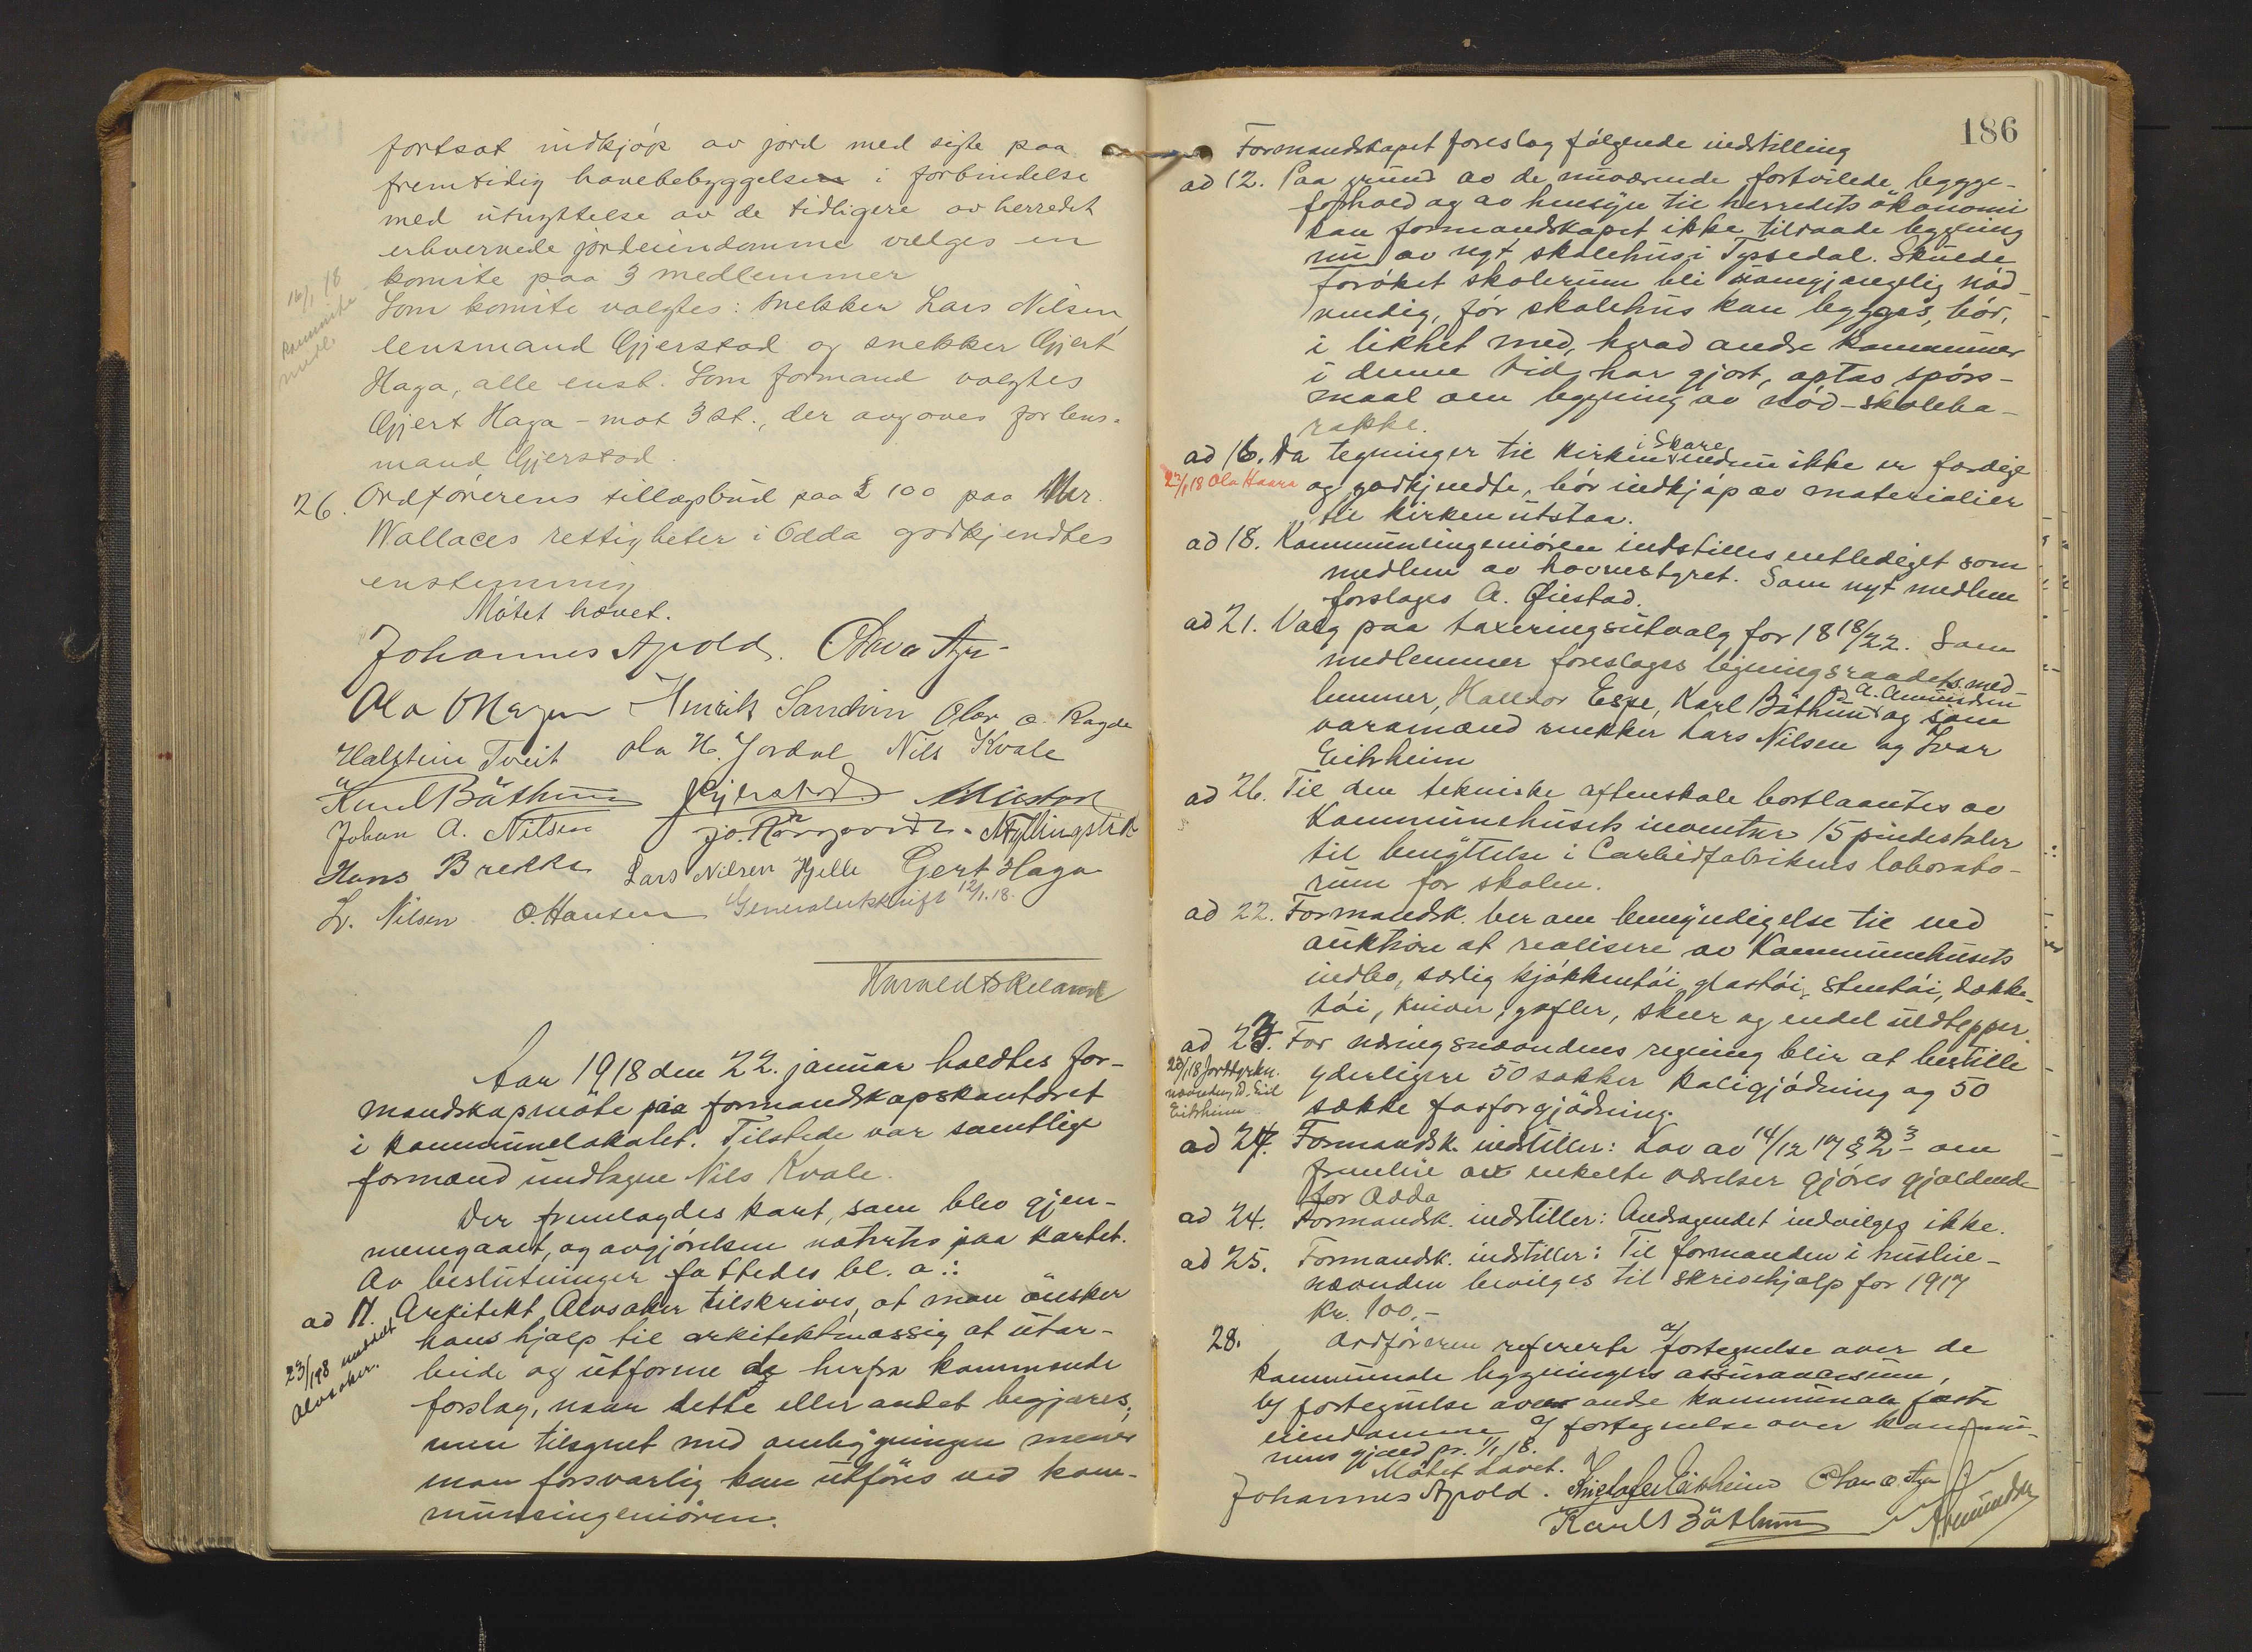 fortsat indkjøp av jord med sigte paa
fremtidig havebebyggelse i forbindelse
med utnyttelse av de tidligere av herredet
erhvervede jordeiendomme vælges en
komite paa 3 medlemmer
16/1 18
Som komite valgtes: snekker Lars Nilsen,
lensmand Gjerstad og snekker Gjert
Haga, alle enst. Som formand valgtes
Gjert Haga - mot 3 st., der avgaves for lens-
mand Gjerstad.
26. Ordførerens tillægsbud paa £ 100 paa Mr.
Wallaces rettigheter i Odda godkjendtes
enstemmig
Møtet hævet.
Johannes Apold. Olav Aga
Ola Hagen Henrik Sandvin Olav a. Ragde
Halstein Tveit Ola H. Jordal Nils Kvale
Karl Bøthun Gjerstad A Øiestad
Johan A. Nilsen
Hans Brekke Lars Nilsen Hjelle Gert Haga
L. Nilsen O. Hansen Generalutskrift 12/1.18.
Harald Skeland
Aar 1918 den 22. januar holdtes for-
mandskapmøte paa formandskapskontoret
i kommunelokalet. Tilstede var samtlige
formænd undtagen Nils Kvale.
Der fremlagdes kart, som blev gjen-
nemgaaet, og avgjørelsen noteres paa kartet.
Av beslutninger fattedes bl. a.:
ad 11. Arkitekt Alvsaker tilskrives, at man ønsker
hans hjælp til arkitektmæssig at utar-
23/1 98 meddelt
Alvsaker.
beide og utforme de herfra kommende
forslag, naar dette eller andet begjæres;
men tilsynet med ombygningen mener
man forsvarlig kan utføres ved kom-
muneingeniøren.
186
Formandskapet foreslog følgende indstilling
ad 12. Paa grund av de nuværende fortvilede bygge-
forhold og av hensyn til herredets økonomi
kan formandskapet ikke tilraade bygging
nu av nyt skolehus i Tyssedal. Skulde
forøket skolerum bli uomgjængelig nød-
vendig, før skolehus kan bygges, bør,
i likhet med, hvad andre kommuner
i denne tid har gjort, optas spørs-
maal om bygning av nød-skoleba-
rakke.
ad 16. Da tegninger til kirken i Skare endnu ikke er færdige
23/1 18 Ola Haara
og godkjendte, bør indkjøp av materialier
til kirken utstaa.
ad 18. Kommuneingeniøren indstilles entlediget som
medlem av havnestyret. Som nyt medlem
forslages A. Øiestad.
ad 21. Valg paa taxeringsutvalg for 1818/22. Som
medlemmer foreslages ligningsraadets med-
lemmer, Halldor Espe, Karl Bøthun og A. Amundsen og som
varamænd snekker Lars Nilsen og Ivar
Eitrheim
ad 26. Til den tekniske aftenskole bortlaantes av
Kommunehusets inventar 15 pindestoler
til benyttelse i Carbidfabrikens laborato-
rium for skolen.
ad 22. Formandsk. ber om bemyndigelse til ved
auktion at realisere av Kommunehusets
indbo, særlig kjøkkentøi, glastøi, stentøi, dække-
tøi, kniver, gafler, skeer og endel uldtepper.
ad 23. For næringsnævndens regning blir at bestille
23/1 18 Jorddyrkn.
nævnden
Eitrheim
yderligere 50 sækker kaligjødning og 50
sække fosforgjødning.
ad 27. Formandsk. indstiller: Lov av 14/12 17 § 2 - 3 om
fremleie av enkelte værelser gjøres gjældende
for Odda
ad 24. Formandsk. indstiller: Andragendet indvilges ikke.
ad 25. Formandsk. indstiller: Til formanden i husleie-
nævnden bevilges til skrivehjælp for 1917
kr. 100,-
28. Ordføreren refererte a/ fortegnelse over de
kommunale bygningers assurancesum,
b/ fortegnelse over andre kommunale faste
eiendomme c/ fortegnelse over kommu-
nens gjæld pr. 1/1 18.
Møtet hævet.
Johannes Apold. Olav O. Aga
Karl Bøthun A. Amundsen